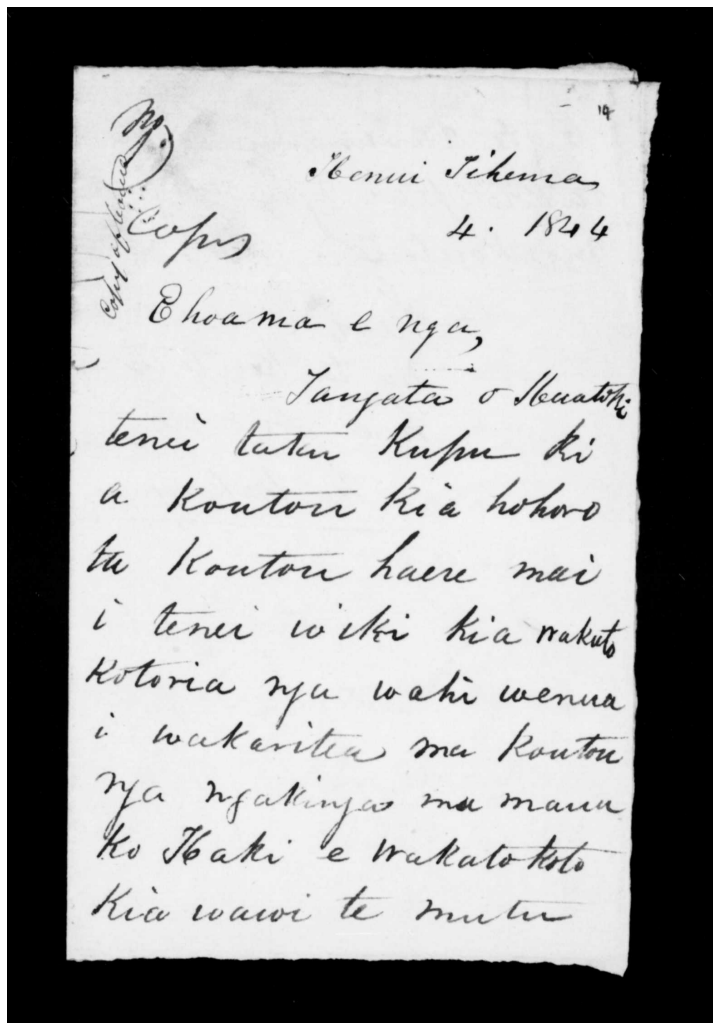 19
No.
Copy of lenua
Copy
Henui Tihema
4. 1844
Ehoama e nga,
Tangata o Huatoki
tenei taku Kupu ki
a Koutou kia hohoro
ta Koutou haere mai
i tenei wiki kia wakato
kotoria nga wahi wenua
i wakaritea ma Koutou
nga ngakinga ma maua
ko Haki e wakatokoto
kia wawi te mutu